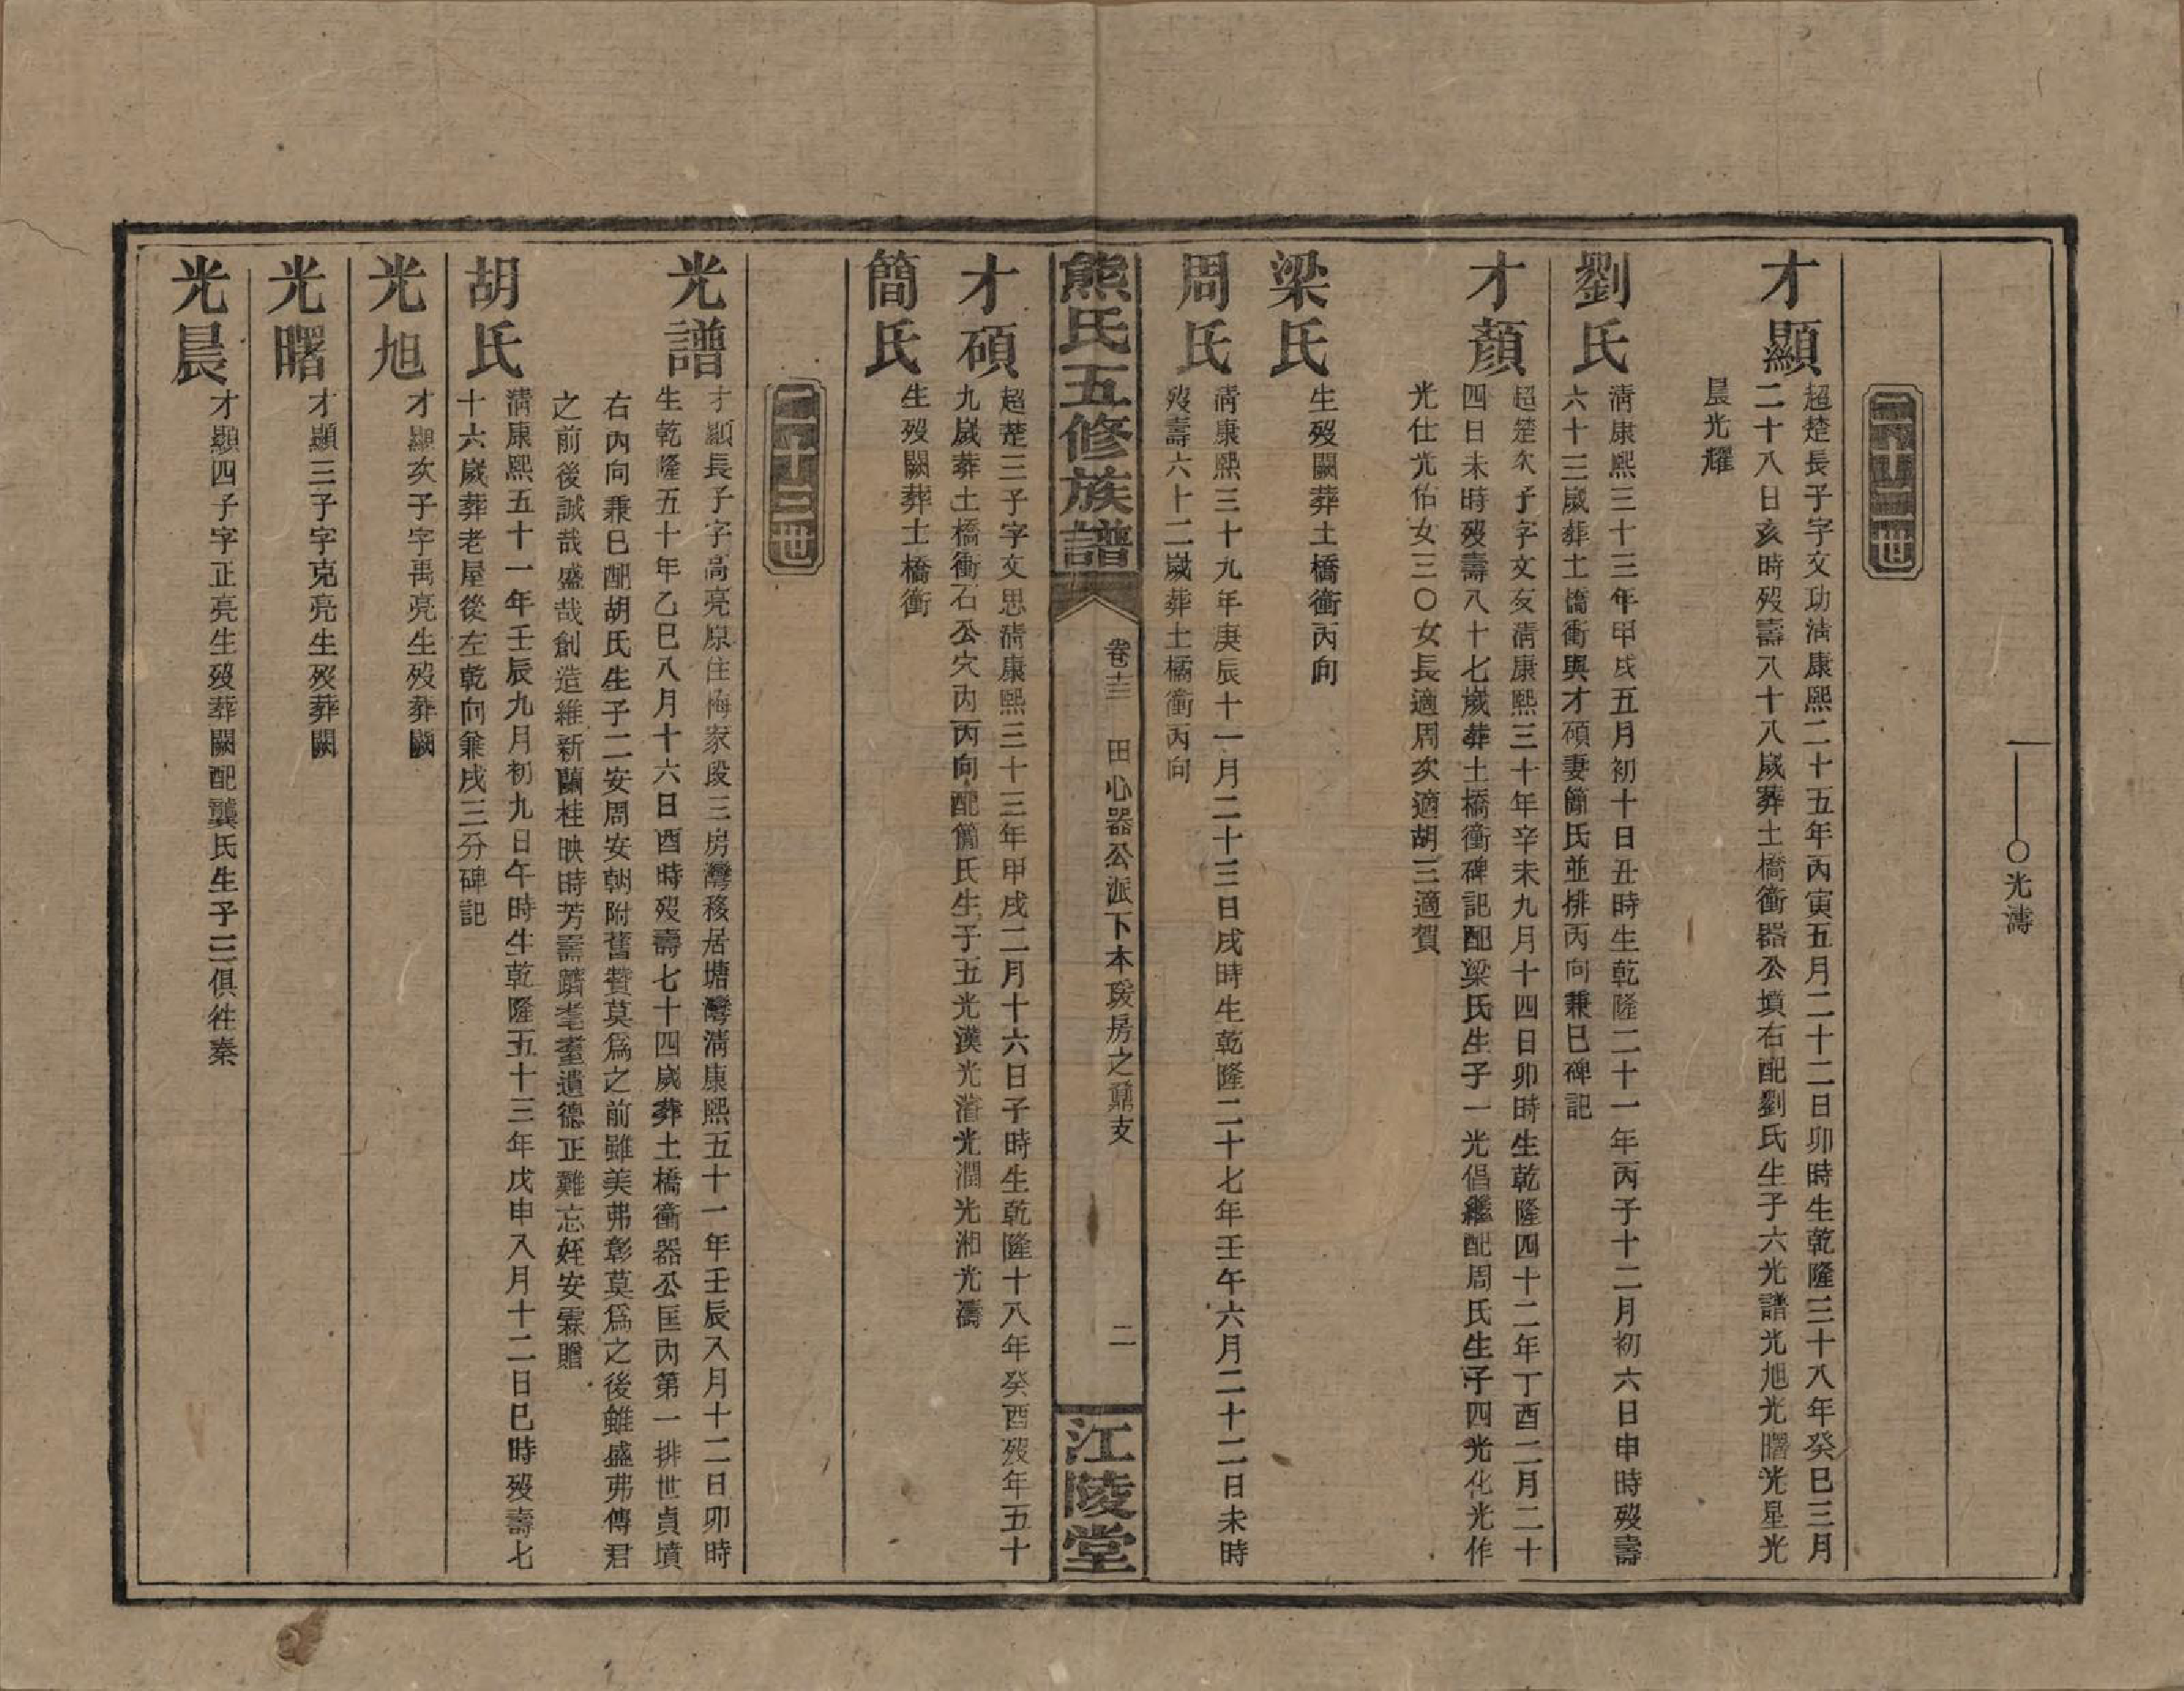 ○光濤
二十二世
才顯
超楚長子字文功淸康熙二十五年丙寅五月二十二日卯時生乾隆三十八年癸巳三月
二十八日亥時歿壽八十八歲葬土橋衝器公墳右配劉氏生子六光譜光旭光曙光星光
晨光耀
劉氏
淸康熙三十三年甲戌五月初十日丑時生乾隆二十一年丙子十二月初六日申時歿壽
六十三歲葬土橋衝與才碩妻簡氏並排丙向兼巳碑記
才顏
超楚次子字文友淸康熙三十年辛未九月十四日卯時生乾隆四十二年丁酉二月二十
四日未時歿壽八十七歲葬土橋衝碑記配梁氏生子一光倡繼配周氏生子四光化光作
光仕光佑女三○女長適周次適胡三適賀
梁氏
生歿闕葬土橋衝丙向
周氏
淸康熙三十九年庚辰十一月二十三日戌時生乾隆二十七年壬午六月二十二日未時
歿壽六十二歲葬土橋衝丙向
熊氏五修族譜
卷十三　田心器公派下本璦房之鼐支
二
江陵堂
才碩
超楚三子字文思淸康熙三十三年甲戌二月十六日子時生乾隆十八年癸酉歿年五十
九歲葬土橋衝石公穴內丙向配簡氏生子五光漢光濳光潤光湘光濤
簡氏
生歿闕葬土橋衝
二十三世
光譜
才顯長子字高亮原住梅家段三房灣移居塘灣淸康熙五十一年壬辰八月十二日卯時
生乾隆五十年乙巳八月十六日酉時歿壽七十四歲葬土橋衝器公匡內第一排世貞墳
右丙向兼巳配胡氏生子二安周安朝附舊贊莫爲之前雖美弗彰莫爲之後雖盛弗傳君
之前後誠哉盛哉創造維新蘭桂映時芳壽躋耄耋遺德正難忘姪安霖贈
胡氏
淸康熙五十一年壬辰九月初九日午時生乾隆五十三年戊申八月十二日巳時歿壽七
十六歲葬老屋後左乾向兼戌三分碑記
光旭
才顯次子字禹亮生歿葬闕
光曙
才顯三子字克亮生歿葬闕
光晨
才顯四子字正亮生歿葬闕配龔氏生子三俱徃秦